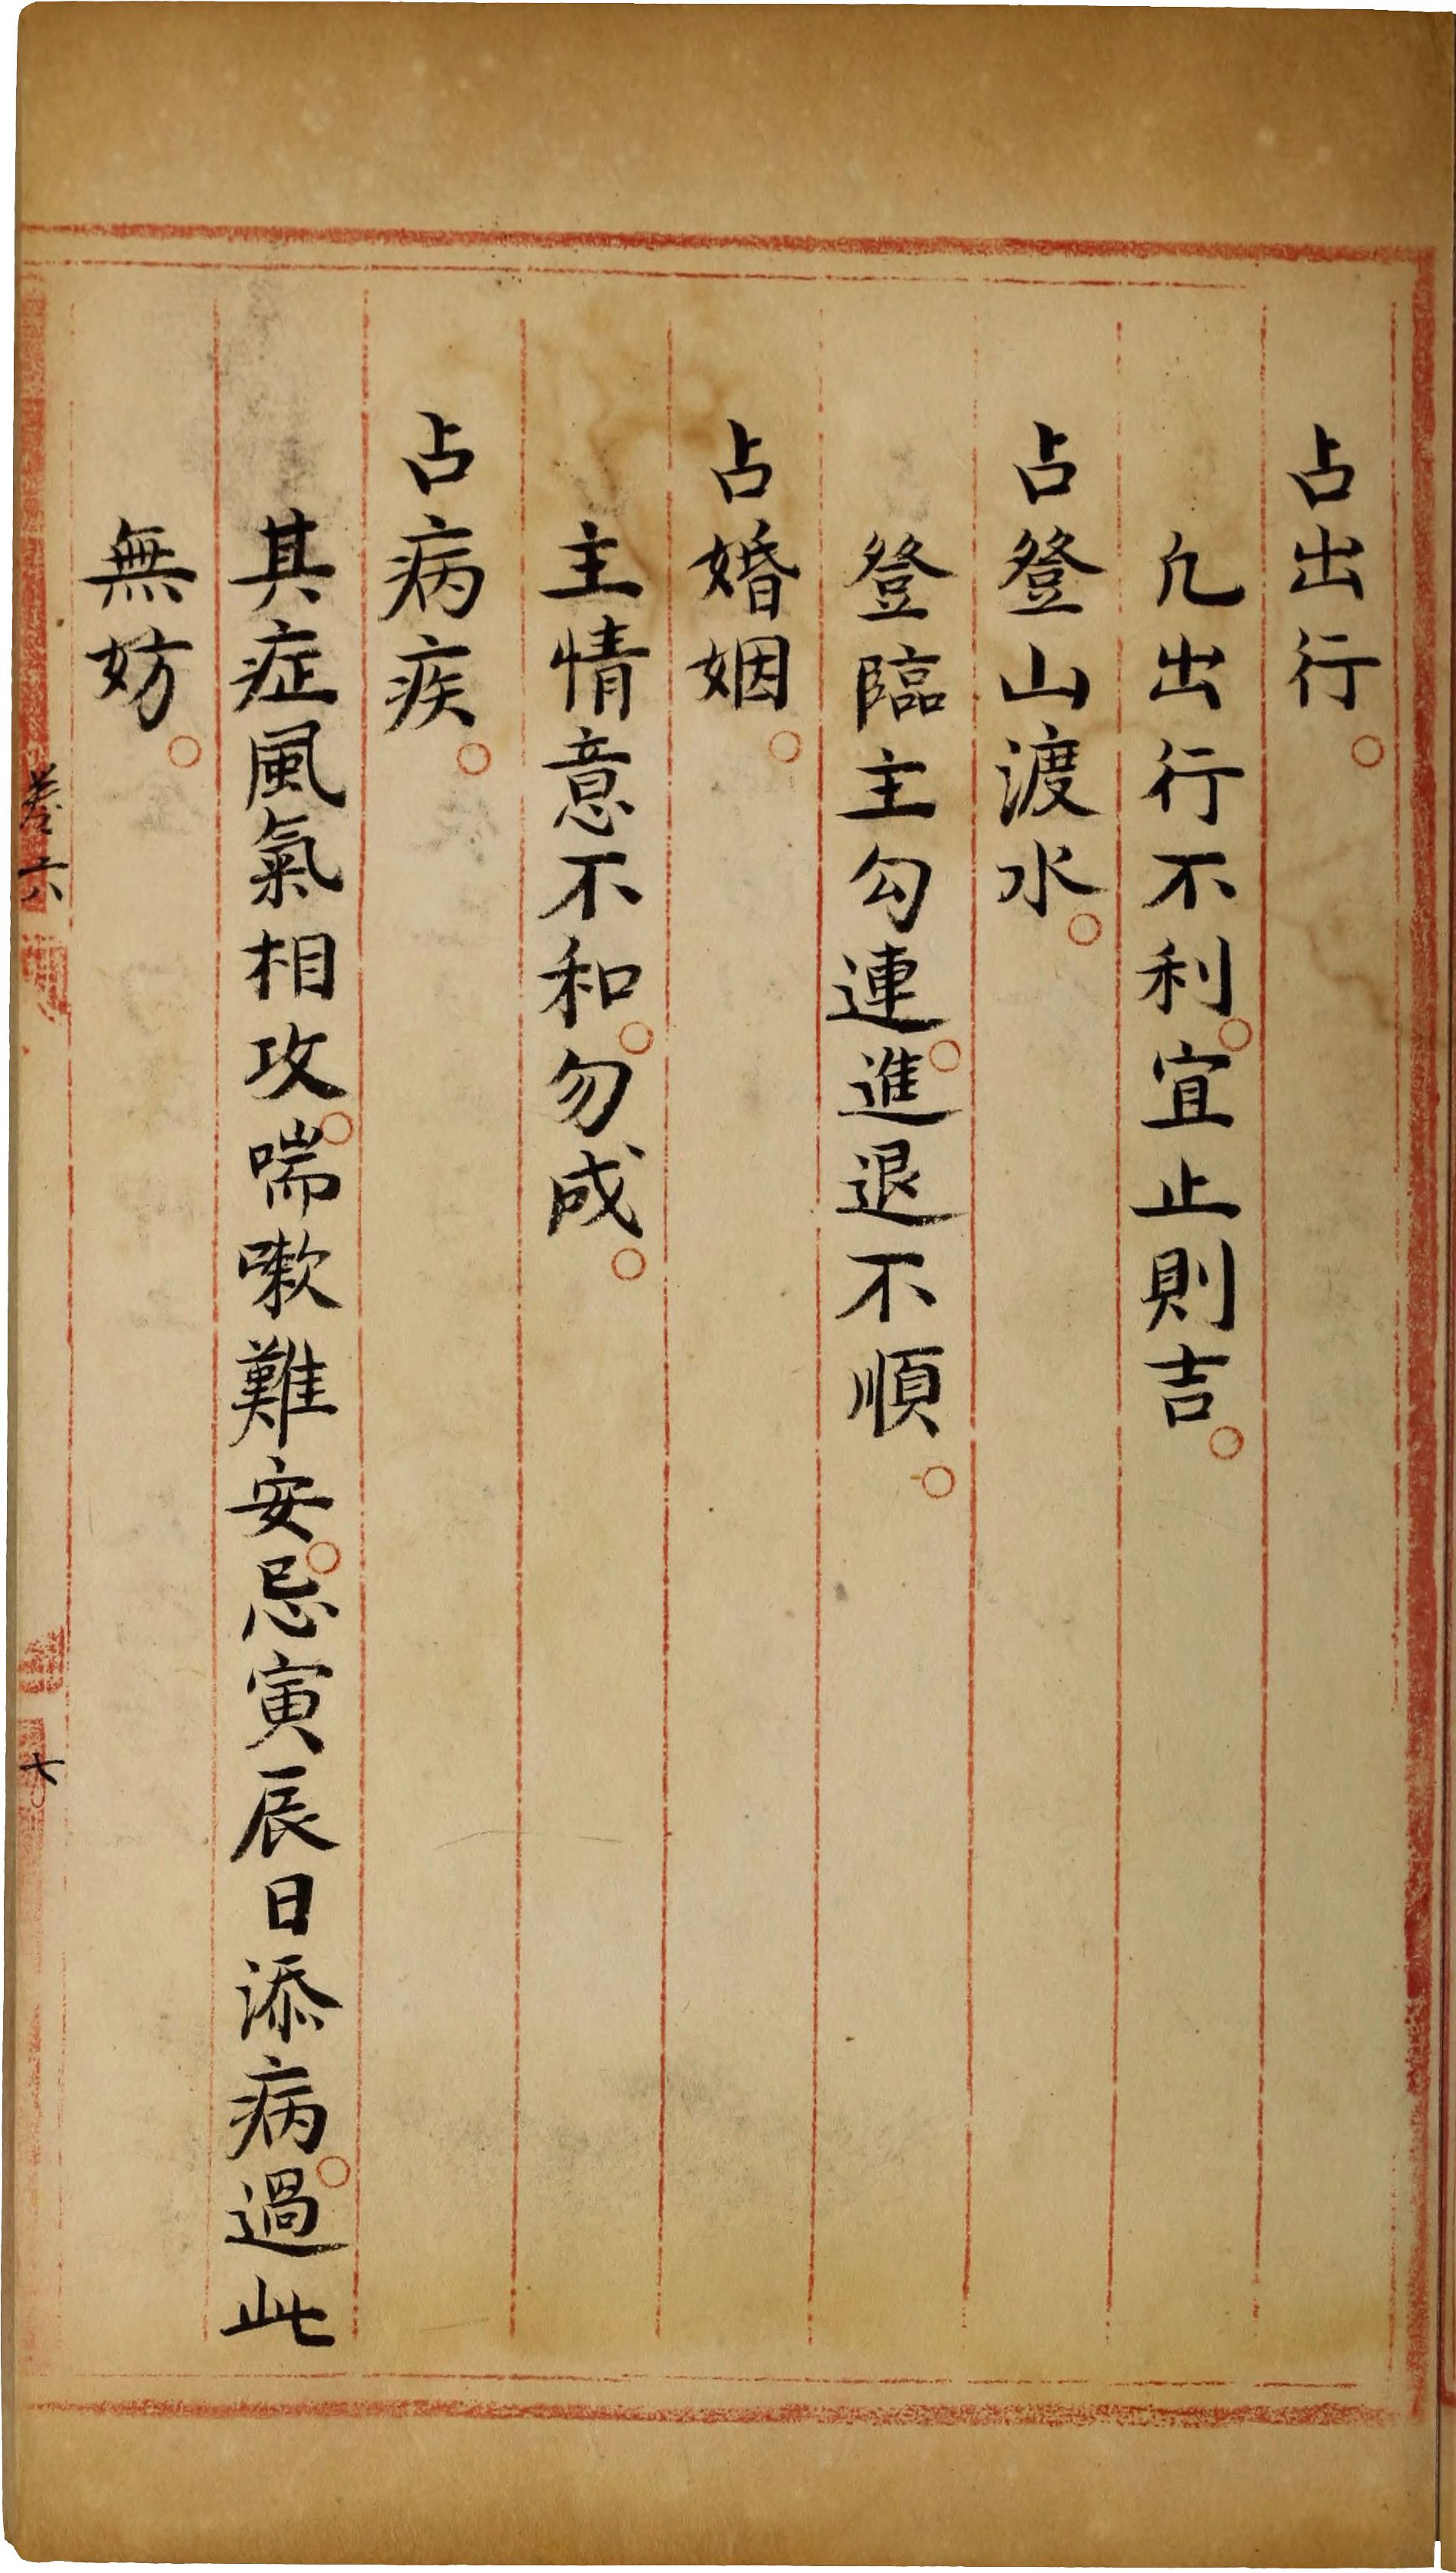 占出行。
凢出行不利。宜止則吉。
占登山渡水。
登臨主勾連。進退不順。
占婚姻。
主情意不和。勿成。
占病疾。
其症風氣相攻。喘嗽難安。忌寅辰日添病。過此
無妨。
卷六
七